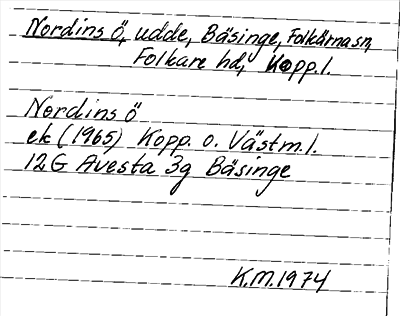 Nordins ö, udde, Bäsinge, Folkärna sn,
Folkare hd, Kopp.l.
Nordins ö
ek (1965) Kopp. o. Västm.l.
12G Avesta 3g Bäsinge
K.M.1974